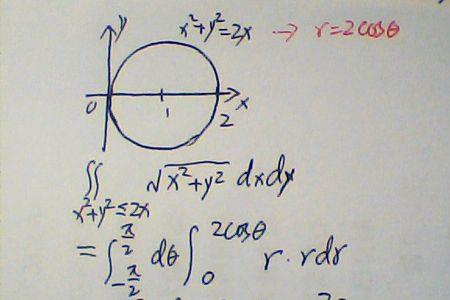 y
x²+y²=2x → r=2cosθ
0 1 2 x
∬ √(x²+y²) dxdy
x²+y²≤2x
= ∫_{-π/2}^{π/2} dθ ∫_0^{2cosθ} r·rdr